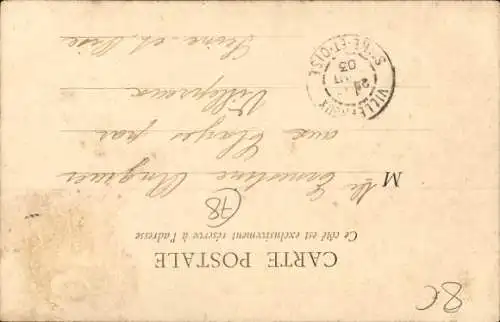 CARTE POSTALE
Ce côté est exclusivement réservé à l'adresse
(78)
M lle Ernestine
aux Clayes par
Villepreux
Seine et Oise
VILLEPREUX
SNE-ET-OISE
03
8€